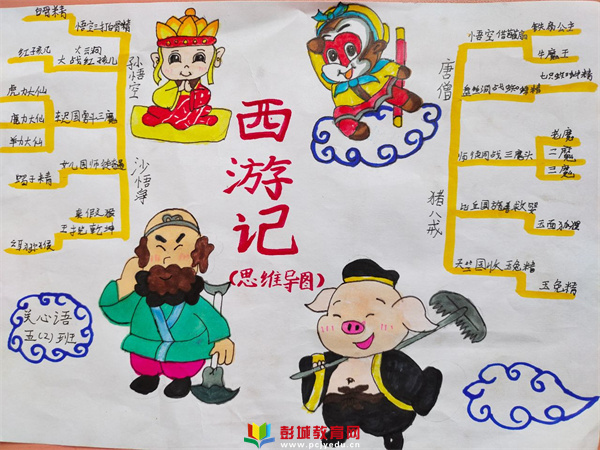 白骨精
悟空三打白骨精
红孩儿
火云洞
大战红孩儿
虎力大仙
鹿力大仙
羊力大仙
车迟国斗三魔
女儿国师徒
蝎子精
真假义猴
王半乾坤
孙悟空
沙悟净
西游记
(思维导图)
唐僧
猪八戒
悟空借
铁扇公主
牛魔王
盘丝洞战蜘蛛精
七只蜘蛛精
师徒同战三魔头
老魔
二魔
三魔
比丘国施善救婴
玉面狐狸
天竺国收玉兔精
玉兔精
关心语
五(2)班
彭城教育网
www.pcjyedu.cn